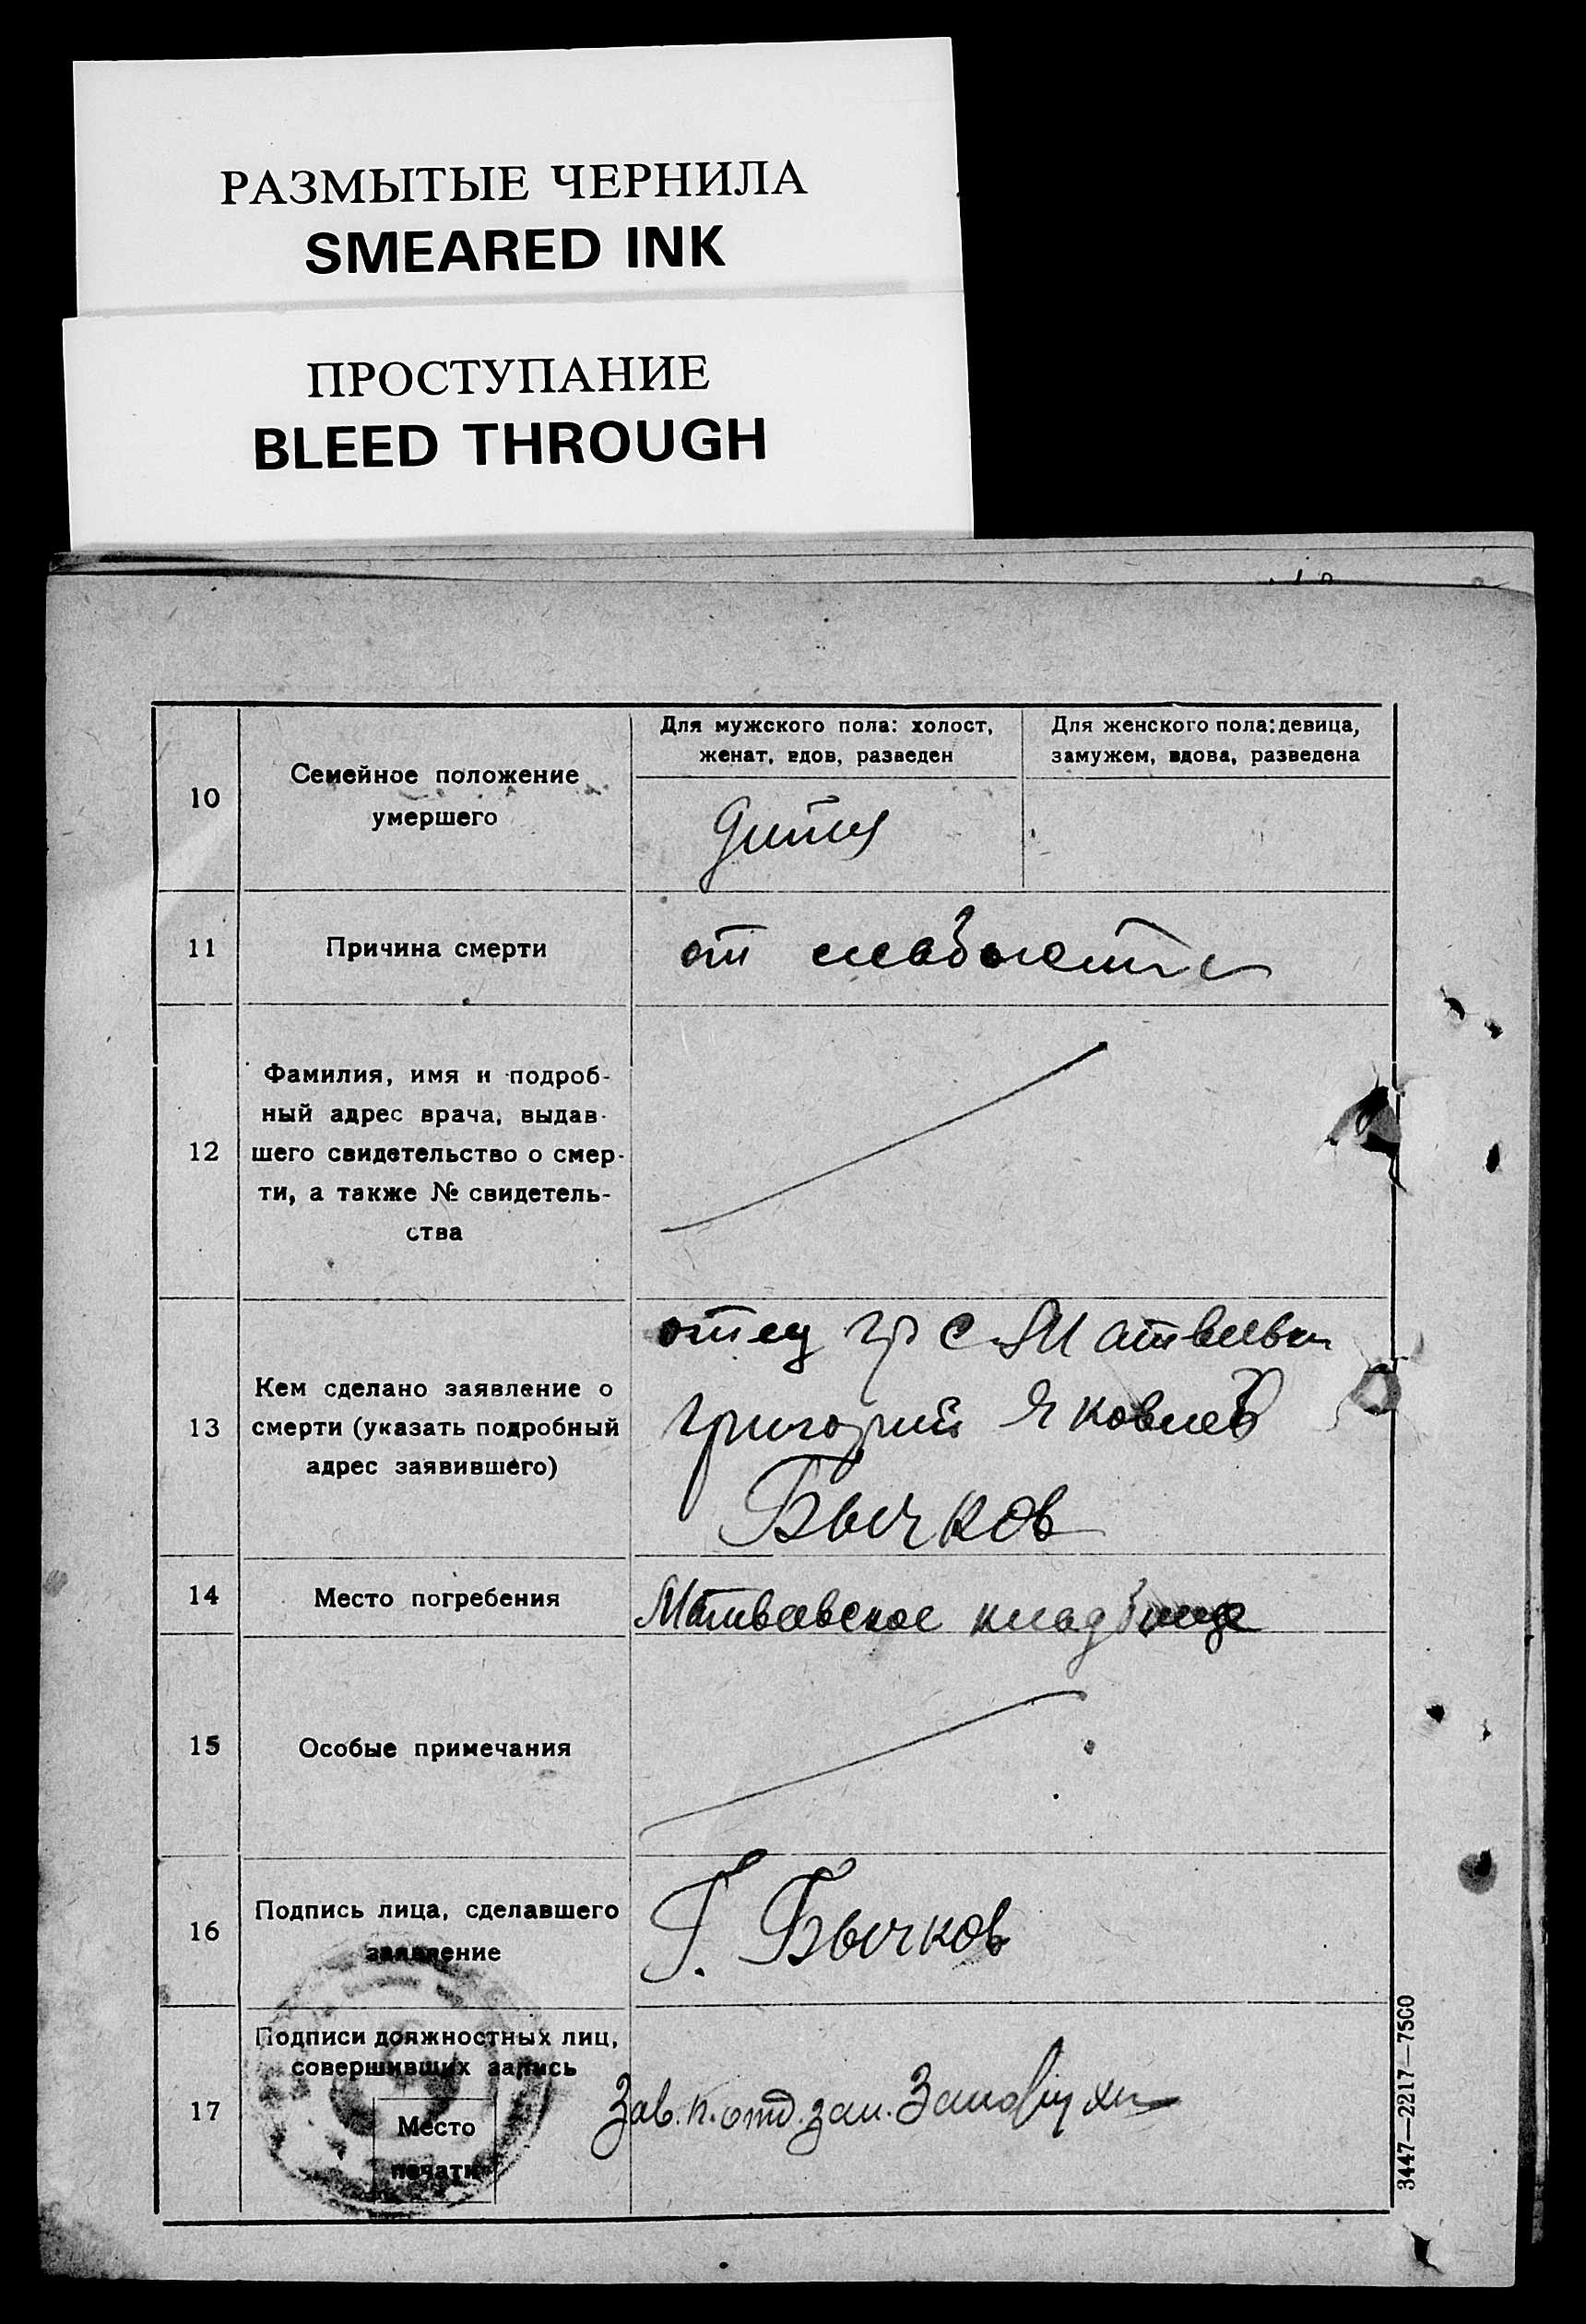 РАЗМЫТЫЕ ЧЕРНИЛА
SMEARED INK
ПРОСТУПАНИЕ
BLEED THROUGH
10
Семейное положение
умершего
Для мужского пола: холост,
женат, вдов, разведен
Для женского пола: девица,
замужем, вдова, разведена
дитя
11
Причина смерти
от слабости
12
Фамилия, имя и подроб-
ный адрес врача, выдав-
шего свидетельство о смер-
ти, а также № свидетель-
ства
13
Кем сделано заявление о
смерти (указать подробный
адрес заявившего)
отец гр с. Матвеевки
Григорий Яковлев
Бычков
14
Место погребения
Матвеевское кладбище
15
Особые примечания
16
Подпись лица, сделавшего
заявление
Г. Бычков
17
Подписи должностных лиц,
совершивших запись
Место
печати
Зав. п. отд. зап.
3447—2217—7500